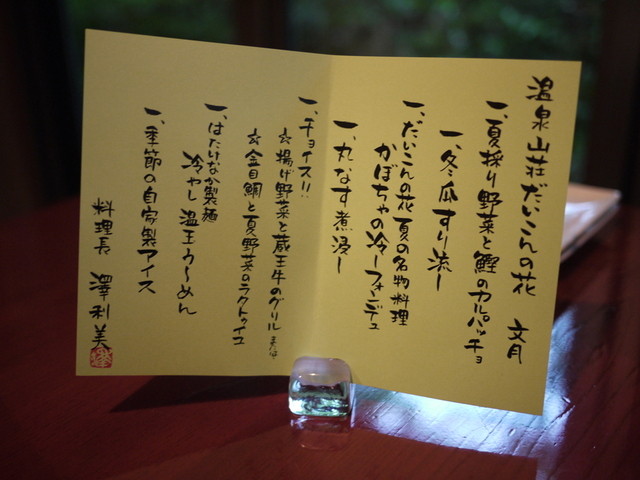 温泉山荘だいこんの花 文月
一、夏採り野菜と鰹のカルパッチョ
一、冬瓜すり流し
一、だいこんの花夏の名物料理
かぼちゃの冷しフォンデュ
一、丸なす煮浸し
一、チョイス!!
☆揚げ野菜と蔵王牛のグリル または
☆金目鯛と夏野菜のラクトゥイユ
一、はたけなか製麺
冷やし温玉うーめん
一、季節の自家製アイス
料理長 澤利美